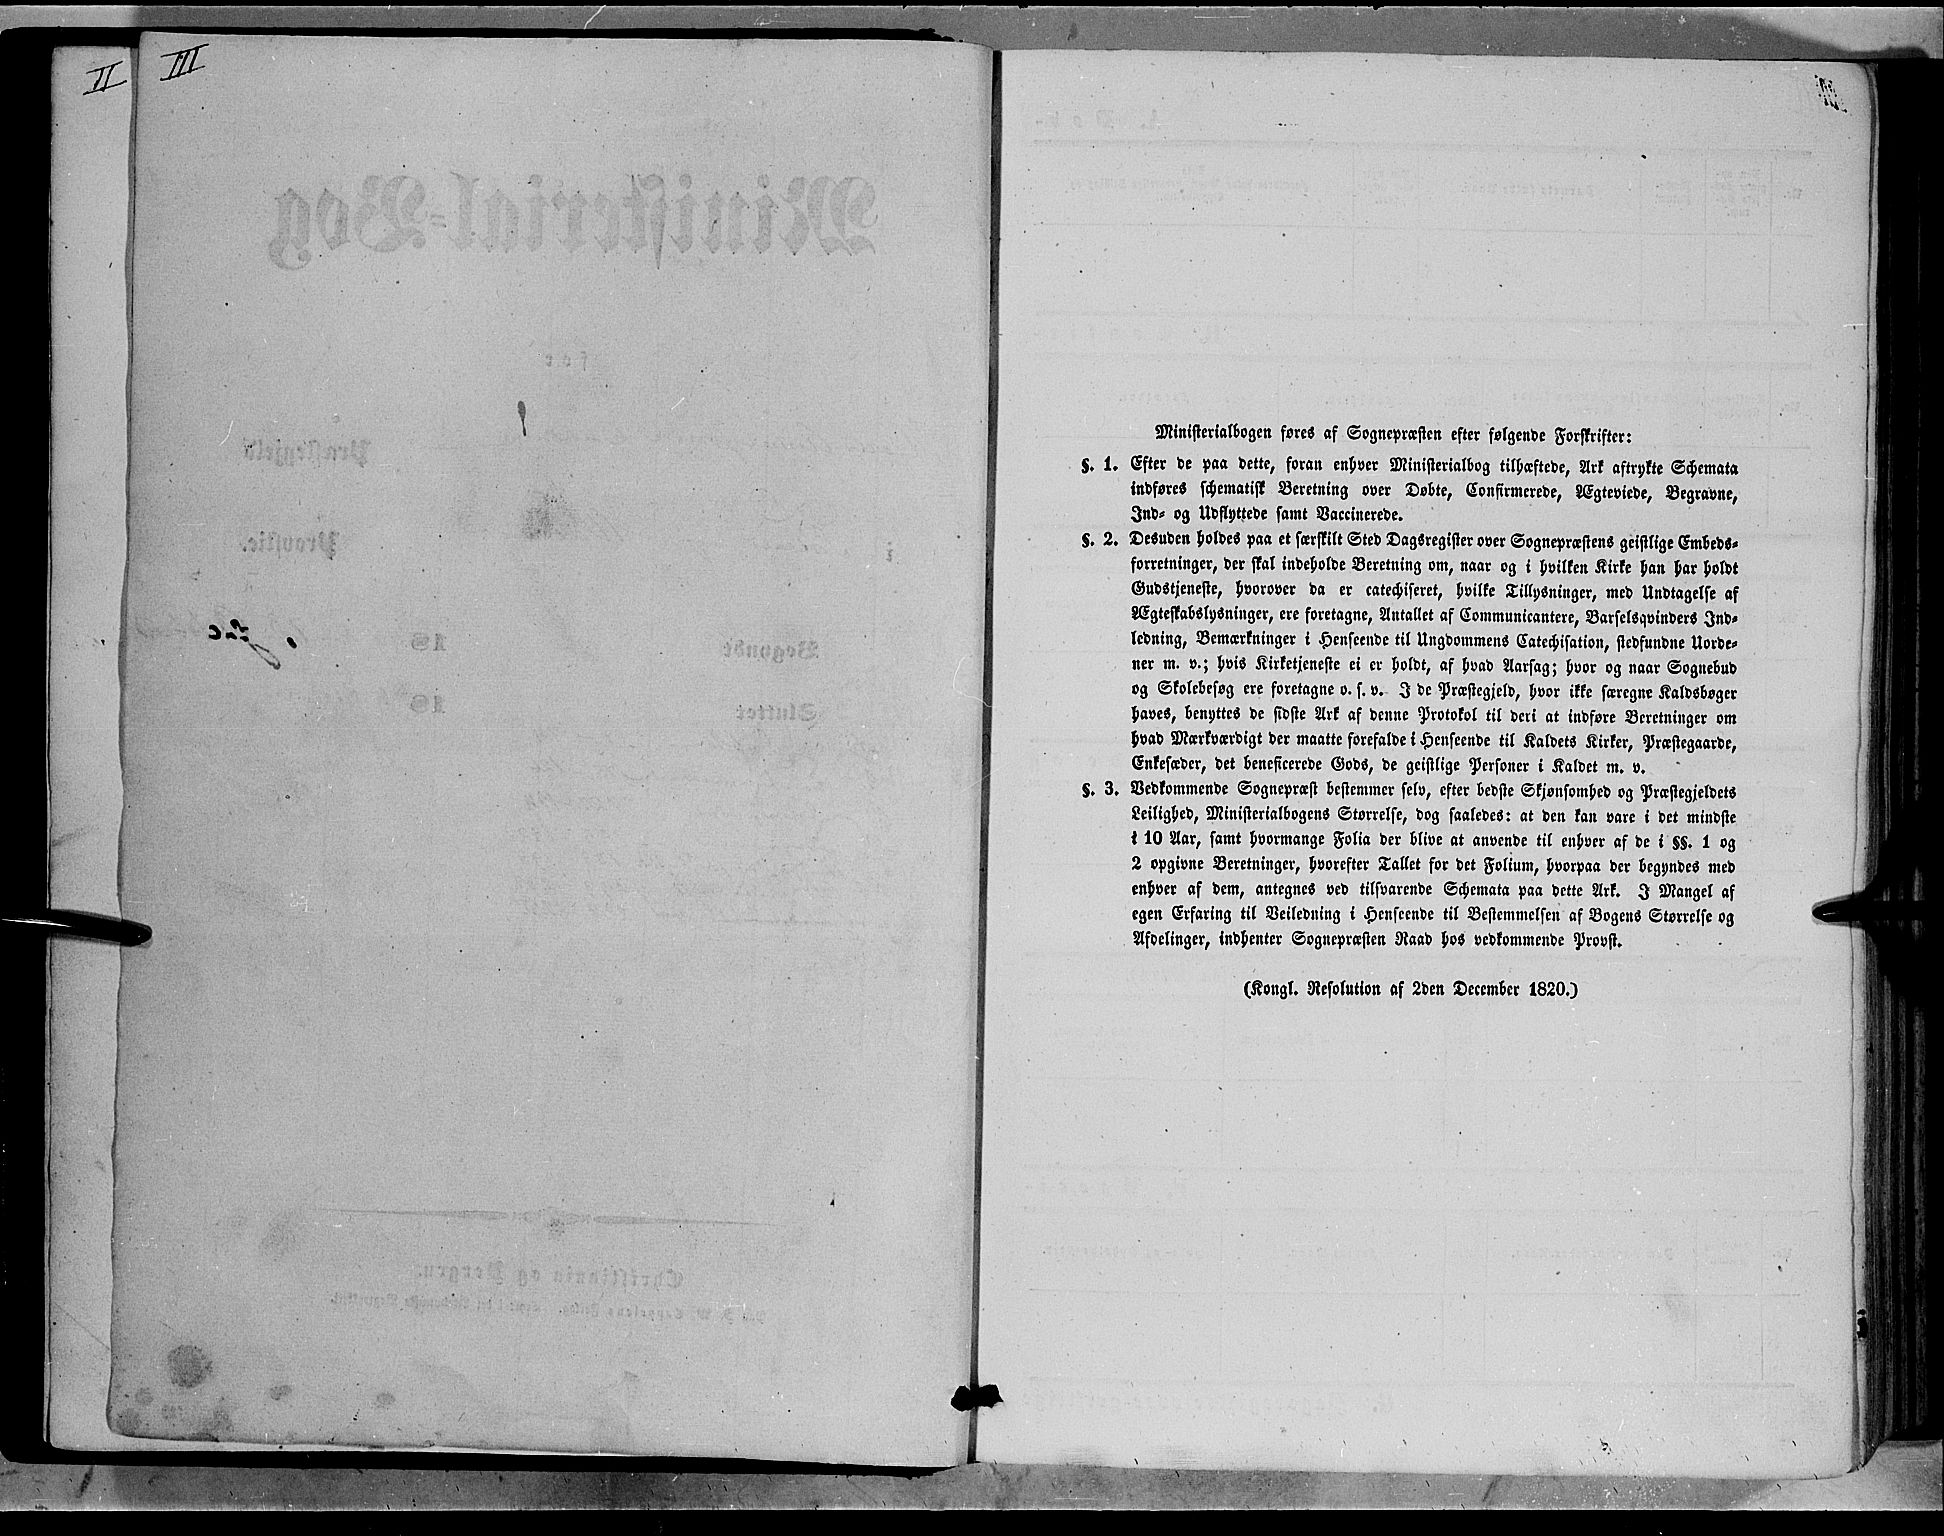 II
III
Ministerialbogen føres af Sognepræsten efter følgende Forskrifter:
§. 1. Efter de paa dette, foran enhver Ministerialbog tilhæftede, Ark aftrykte Schemata
indføres schematisk Beretning over Døbte, Confirmerede, Ægteviede, Begravne,
Ind- og Udflyttede samt Vaccinerede.
§. 2. Desuden holdes paa et særskilt Sted Dagsregister over Sognepræstens geistlige Embeds-
forretninger, der skal indeholde Beretning om, naar og i hvilken Kirke han har holdt
Gudstjeneste, hvorover da er catechiseret, hvilke Tillysninger, med Undtagelse af
Ægteskabslysninger, ere foretagne, Antallet af Communicantere, Barselqvinders Ind-
ledning, Bemærkninger i Henseende til Ungdommens Catechisation, stedfundne Uorde-
ner m. v.; hvis Kirketjeneste ei er holdt, af hvad Aarsag; hvor og naar Sognebud
og Skolebesøg ere foretagne o. s. v. I de Præstegjeld, hvor ikke særegne Kaldsbøger
haves, benyttes de sidste Ark af denne Protokol til deri at indføre Beretninger om
hvad Mærkværdigt der maatte forefalde i Henseende til Kaldets Kirker, Præstegaarde,
Enkesæder, det beneficerede Gods, de geistlige Personer i Kaldet m. v.
§. 3. Vedkommende Sognepræst bestemmer selv, efter bedste Skjønsomhed og Præstegjeldets
Leilighed, Ministerialbogens Størrelse, dog saaledes: at den kan vare i det mindste
i 10 Aar, samt hvormange Folia der blive at anvende til enhver af de i §§. 1 og
2 opgivne Beretninger, hvorefter Tallet for det Folium, hvorpaa der begyndes med
enhver af dem, antegnes ved tilsvarende Schemata paa dette Ark. I Mangel af
egen Erfaring til Veiledning i Henseende til Bestemmelsen af Bogens Størrelse og
Afdelinger, indhenter Sognepræsten Raad hos vedkommende Provst.
(Kongl. Resolution af 2den December 1820.)